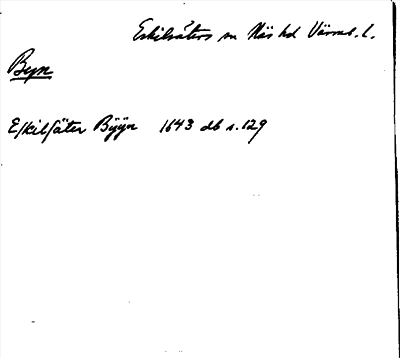 Eskilsäters sn Näs hd Värml. l.
Byn
Eskilsäter Bÿÿn 1643 db s. 129